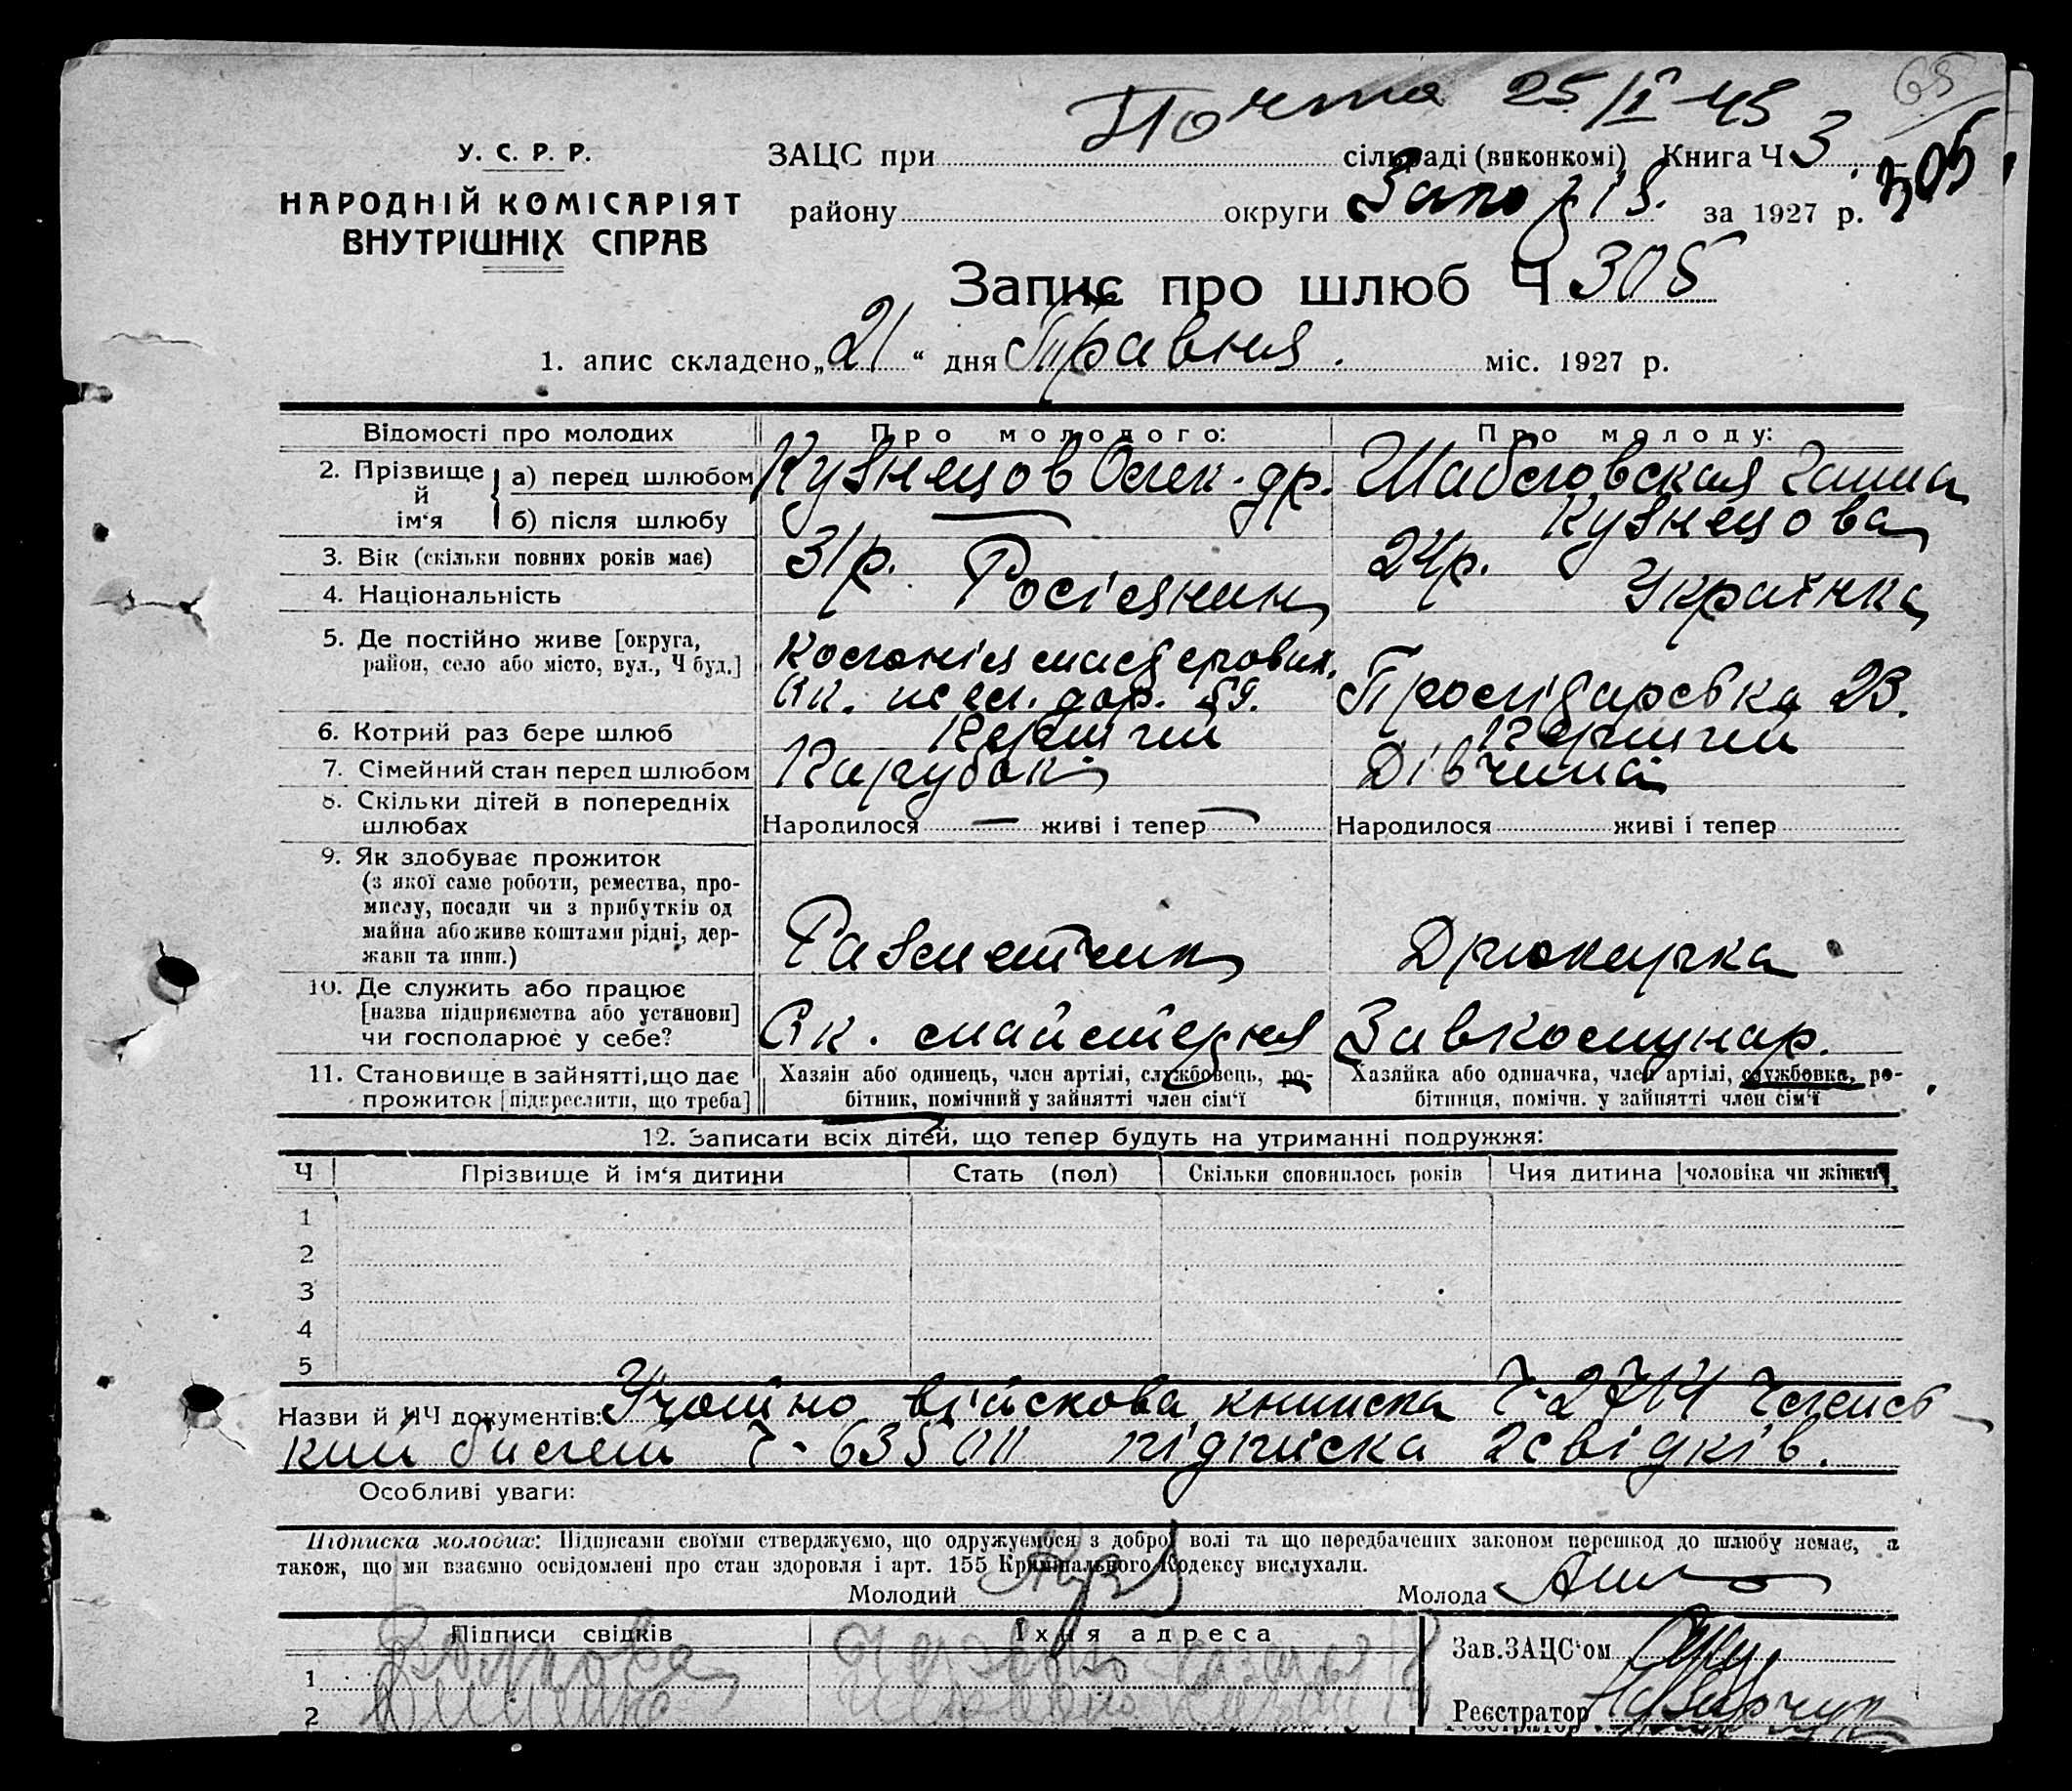 Почта 25/I 45
65
У. С. Р. Р.
НАРОДНІЙ КОМІСАРІЯТ
ВНУТРІШНІХ СПРАВ
ЗАЦС при сільраді (виконкомі) Книга Ч 3. 305
району округи за 1927 р.
Запис про шлюб Ч 305
1. апис складено „21“ дня Травня міс. 1927 р.
Відомості про молодих Про молодого: Про молоду:
2. Прізвище й ім‘я а) перед шлюбом Кузнецов Олек-др. Шабловская Ганна
б) після шлюбу Кузнецова
3. Вік (скільки повних років має) 31 р. 24 р.
4. Національність Росіянин Українка
5. Де постійно живе [округа,
район, село або місто, вул., Ч буд.]
Колонія
дор. 59. 23.
6. Котрий раз бере шлюб Перший Перший
7. Сімейний стан перед шлюбом Парубок Дівчина
8. Скільки дітей в попередніх
шлюбах Народилося — живі і тепер — Народилося живі і тепер
9. Як здобуває прожиток
(з якої саме роботи, ремества, про-
мислу, посади чи з прибутків од
майна або живе коштами рідні, дер-
жави та инш.) Разметчик Друкарка
10. Де служить або працює
[назва підприємства або установи]
чи господарює у себе? майстерня Завкомунар.
11. Становище в зайнятті, що дає
прожиток [підкреслити, що треба]
Хазяїн або одинець, член артілі, службовець, ро-
бітник, помічний у зайнятті член сім‘ї
Хазяйка або одиначка, член артілі, службовка, ро-
бітниця, помічн. у зайнятті член сім‘ї
12. Записати всіх дітей, що тепер будуть на утриманні подружжя:
Ч Прізвище й ім‘я дитини Стать (пол) Скільки сповнилось років Чия дитина [чоловіка чи жінки]
1
2
3
4
5
Назви й Ч документів: військова книжка Ч-2714 Членсь-
кий билет Ч-635011 підписка 2 свідків.
Особливі уваги:
Підписка молодих: Підписами своїми стверджуємо, що одружуємося з доброї волі та що передбачених законом перешкод до шлюбу немає, а
також, що ми взаємно освідомлені про стан здоровля і арт. 155 Кримінального Кодексу вислухали.
Молодий Молода
Підписи свідків Їхня адреса
Зав. ЗАЦС‘ом
1
2
Реєстратор